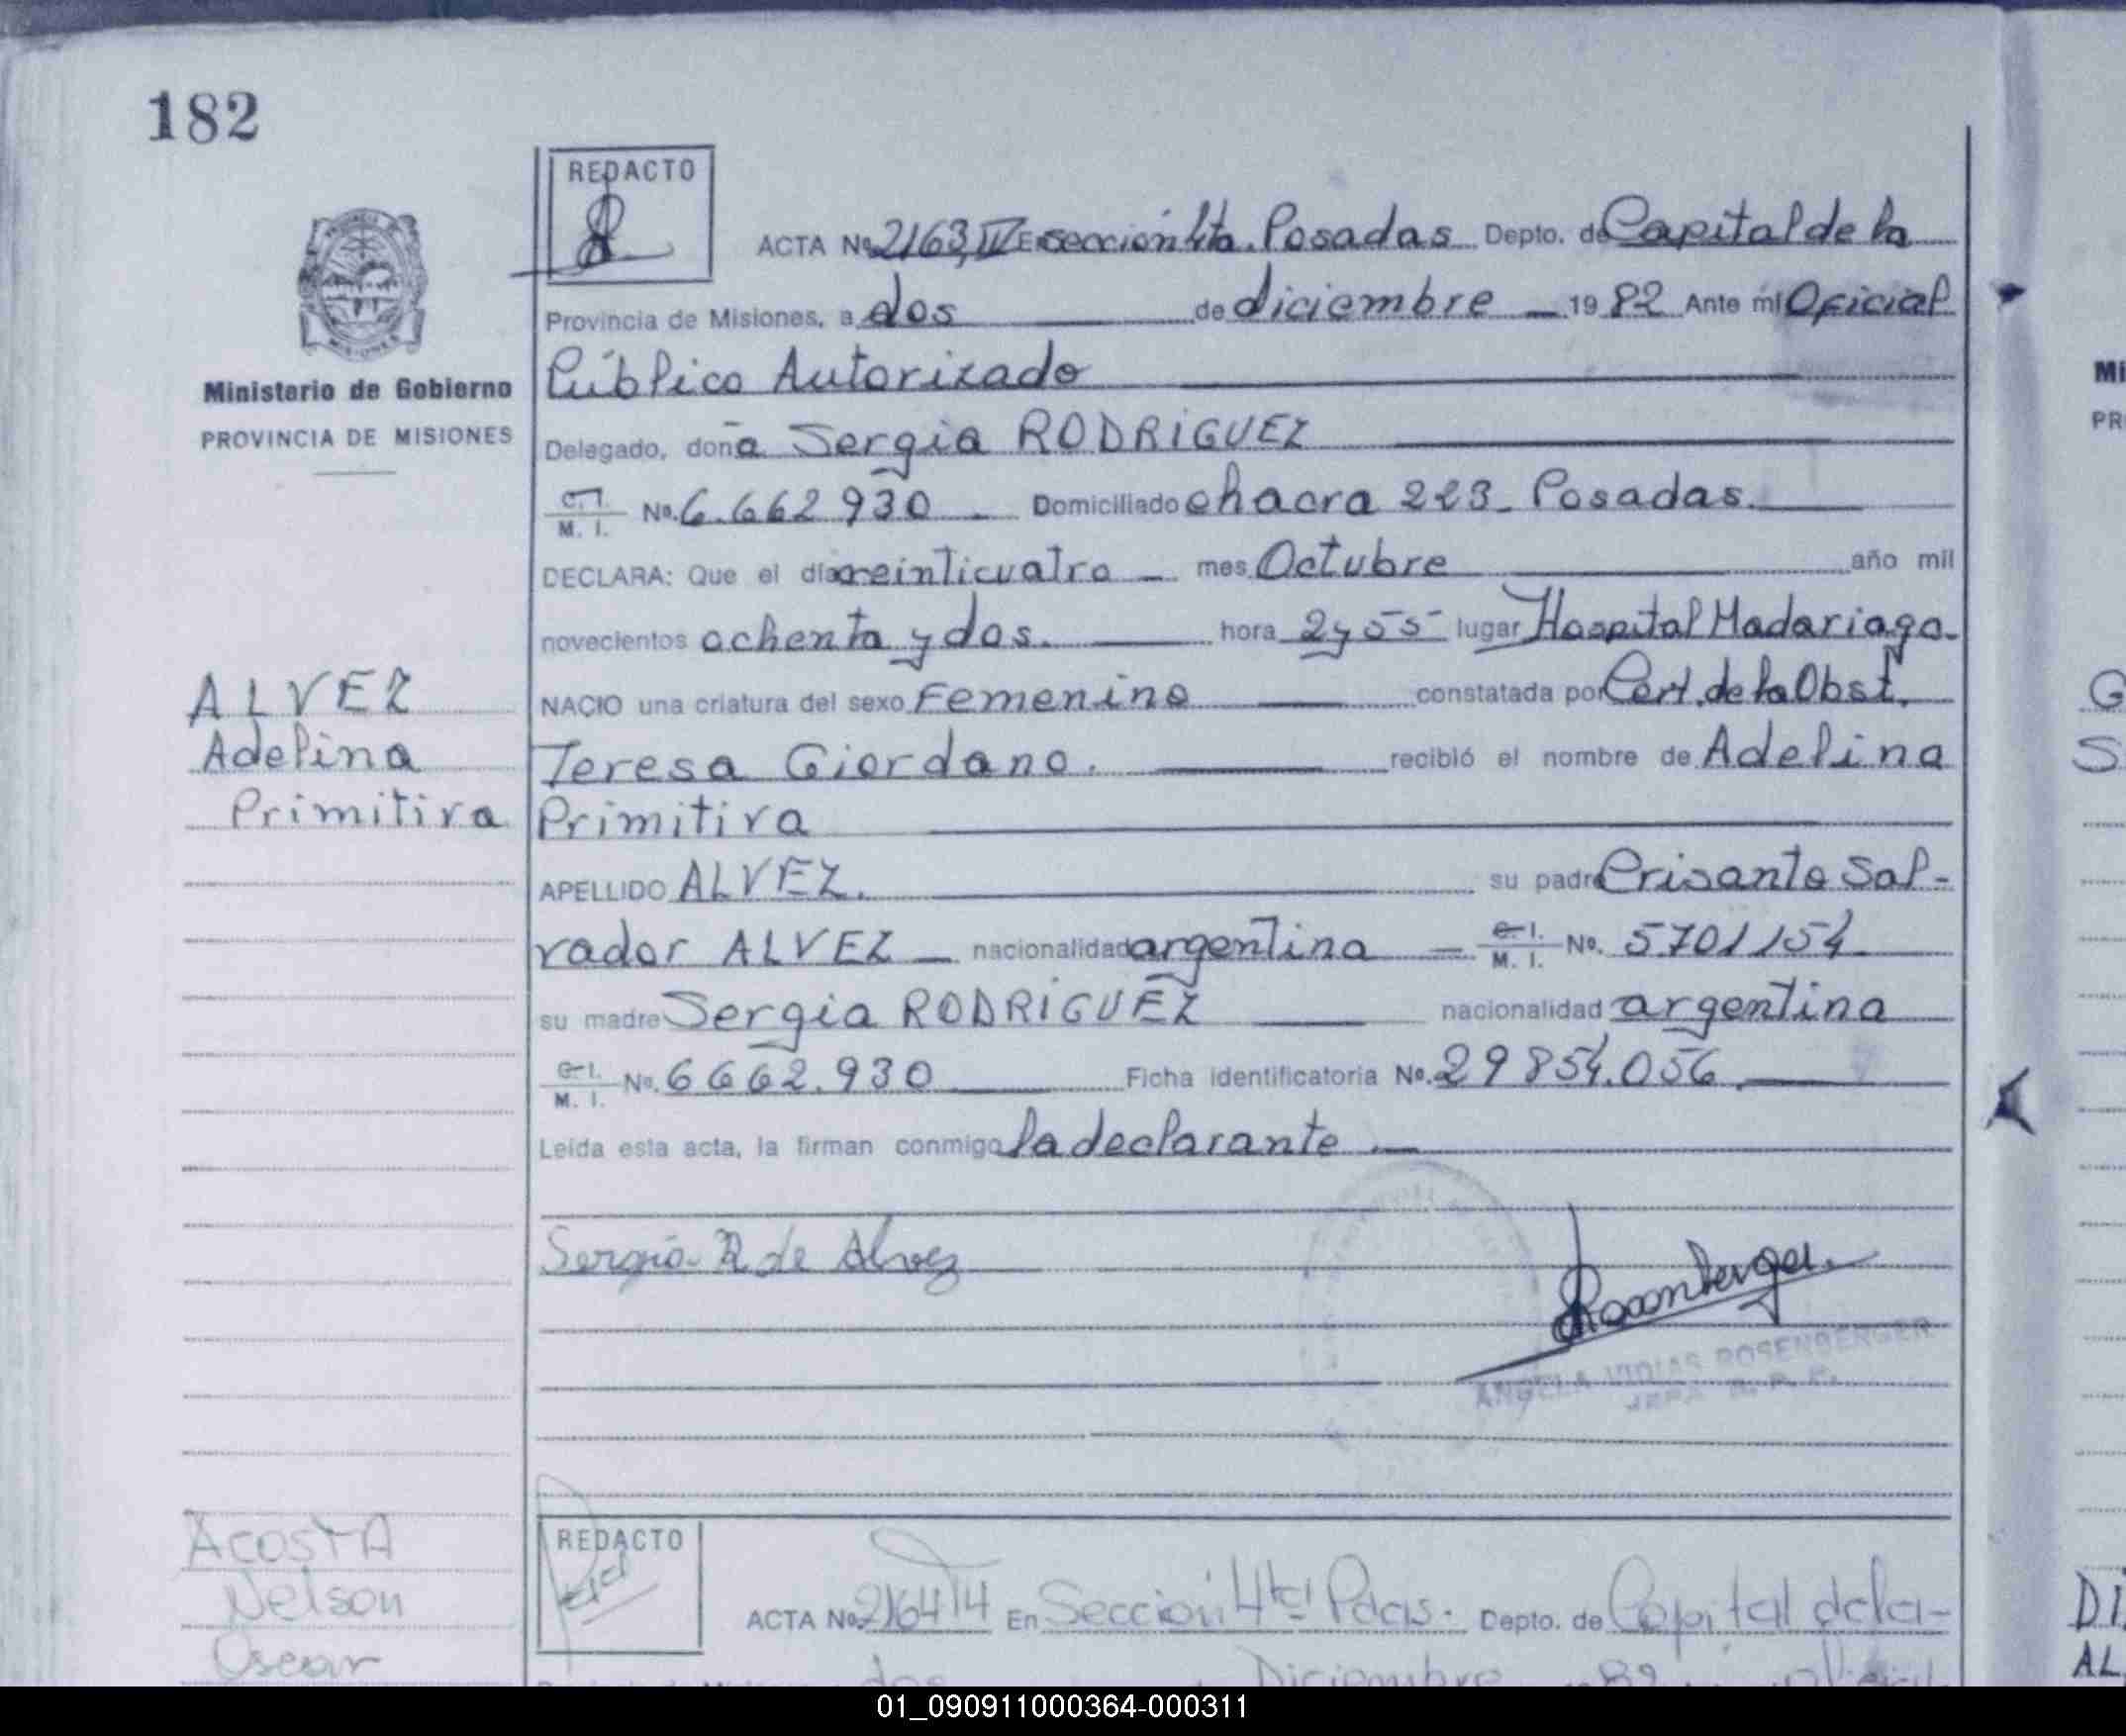 182
REDACTO
ACTA Nº 2163, IV En sección 4ta. Posadas Depto. de Capital de la
Provincia de Misiones, a dos de diciembre 1982 Ante mí Oficial
Público Autorizado
Ministerio de Gobierno
PROVINCIA DE MISIONES
Delegado, doña Sergia RODRIGUEZ
C. I. M. I. Nº. 6.662.930 Domiciliado chacra 223 - Posadas.
DECLARA: Que el día veinticuatro mes Octubre año mil
novecientos ochenta y dos. hora 2 y 55 lugar Hospital Madariaga.
ALVEZ
Adelina
Primitiva
NACIO una criatura del sexo Femenino constatada por Cert. de la Obst.
Teresa Giordano. recibió el nombre de Adelina
Primitiva
APELLIDO ALVEZ. su padre Crisanto Sal-
vador ALVEZ nacionalidad argentina C. I. M. I. Nº. 5701154
su madre Sergia RODRIGUEZ nacionalidad argentina
C. I. M. I. Nº. 6662.930 Ficha identificatoria Nº. 29854.056
Leída esta acta, la firman conmigo la declarante
Sergia R de Alvez
Rosenberger
ANGELA VIDIAS ROSENBERGER
ACOSTA
Nelson
Oscar
REDACTO
ACTA Nº 2164 T4 En Sección 4ta Pdas. Depto. de Capital de la-
dos Diciembre 82
G
S
Mi
PR
Di
AL
01_090911000364-000311